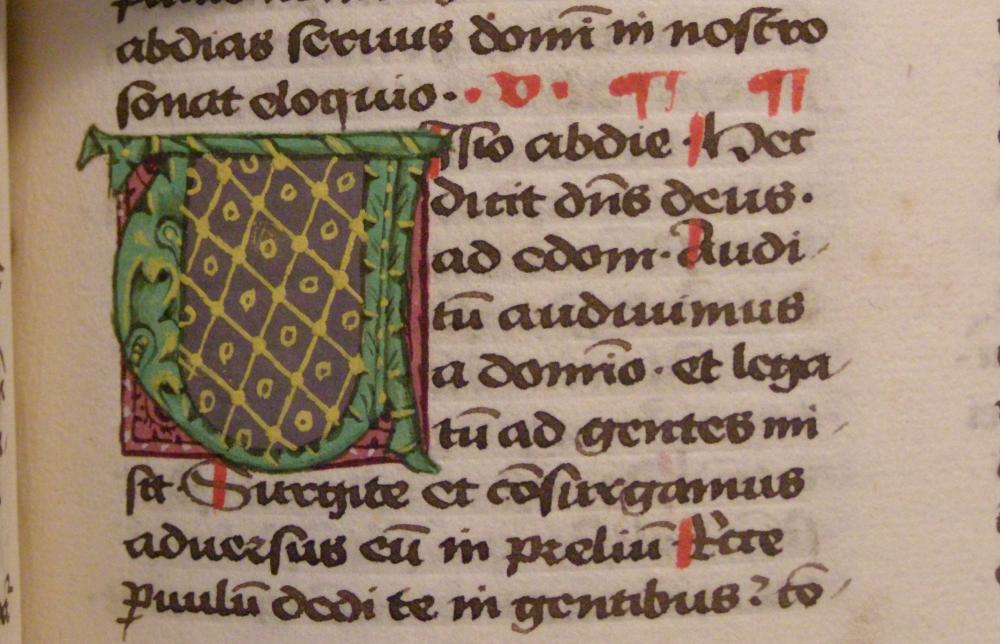 abdias seruus domī in nostro
sonat eloquio · v · ¶ ¶
Visio abdie Hec
dicit dn̄s deus ·
ad edom · Audi
tū audiuimus
a domīo · et lega
tū ad gentes mi
sit · Surgite et cōsurgamus
aduersus eū in preliū Ecce
ꝑuulū dedi te in gentibus : cō